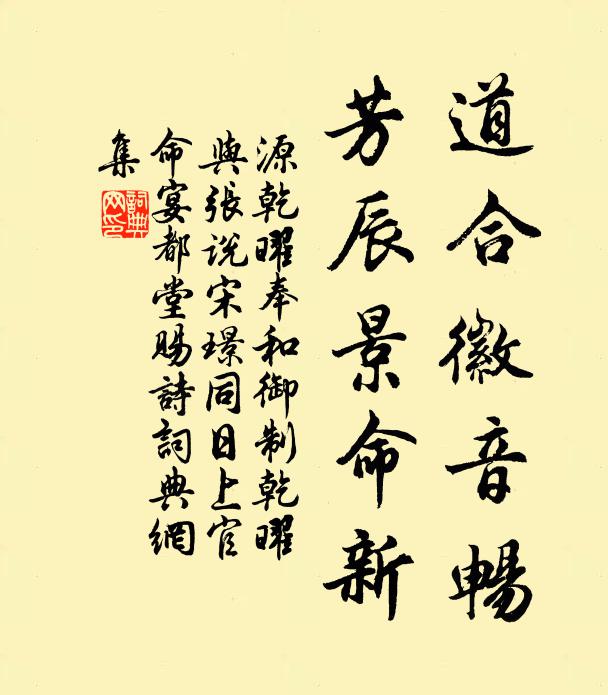 道合徽音暢
芳辰景命新
源乾曜奉和御制乾曜
與張説宋璟同日上官
命宴都堂賜詩詞典網
集
詞典
网印